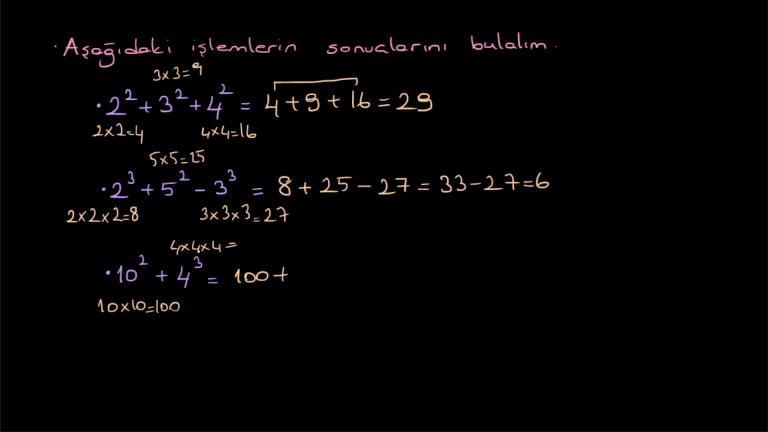 · Aşağıdaki işlemlerin sonuçlarını bulalım.
3×3=9
· 2² + 3² + 4² = 4+9+16=29
2×2=4 4×4=16
5×5=25
· 2³ + 5² − 3³ = 8 + 25 − 27 = 33−27=6
2×2×2=8 3×3×3=27
4×4×4=
· 10² + 4³ = 100+
10×10=100